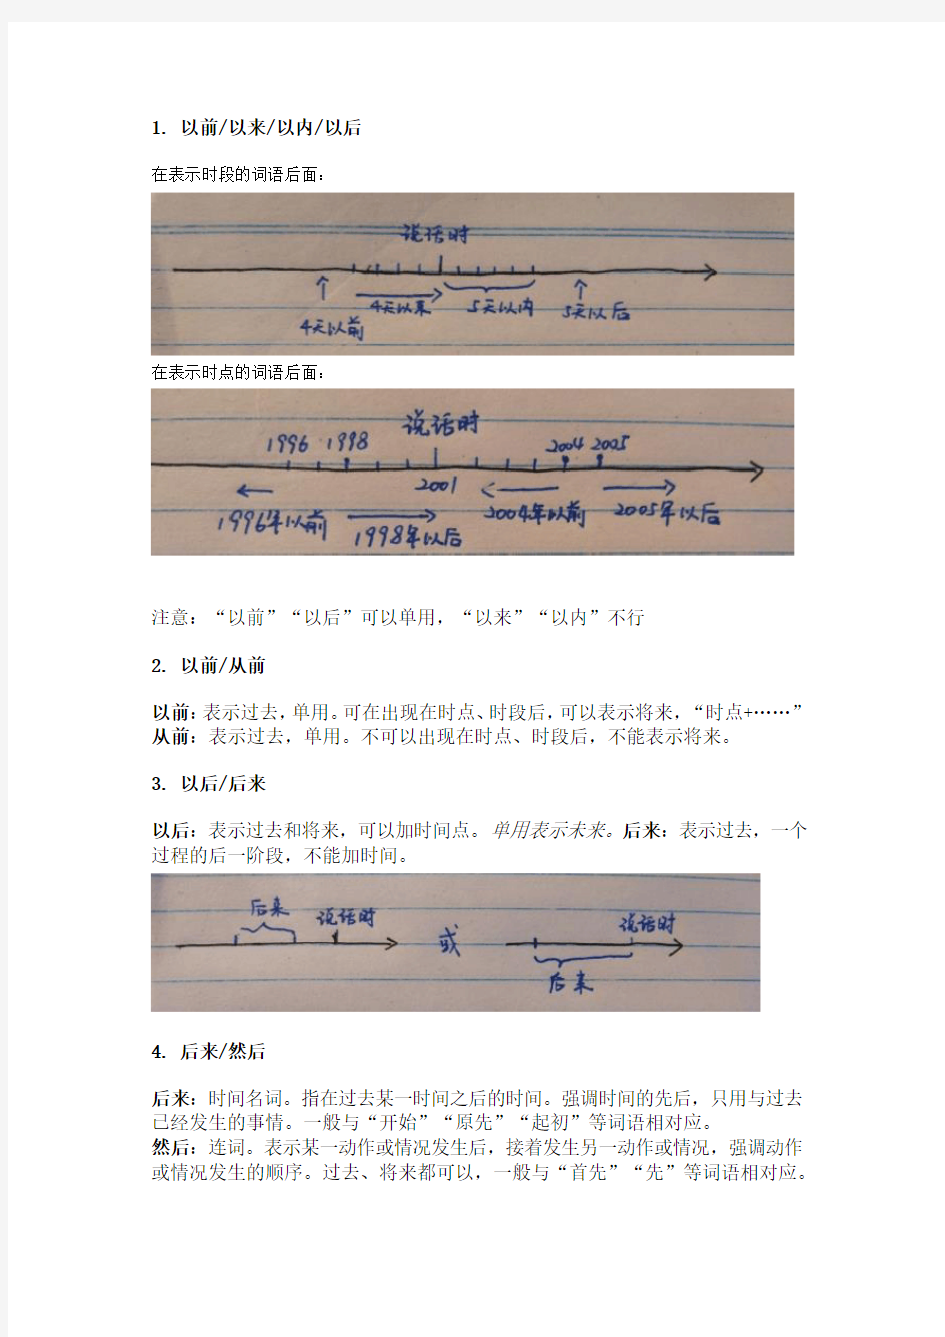 1. 以前/以来/以内/以后
在表示时段的词语后面：
说话时
4天以来 5天以内 5天以后
4天以前
在表示时点的词语后面：
说话时
1996 1998 2004 2005
2001
1996年以前 1998年以后 2004年以前 2005年以后
注意：“以前”“以后”可以单用，“以来”“以内”不行
2. 以前/从前
以前：表示过去，单用。可在出现在时点、时段后，可以表示将来，“时点+……”
从前：表示过去，单用。不可以出现在时点、时段后，不能表示将来。
3. 以后/后来
以后：表示过去和将来，可以加时间点。单用表示未来。后来：表示过去，一个
过程的后一阶段，不能加时间。
后来 说话时 或 说话时
后来
4. 后来/然后
后来：时间名词。指在过去某一时间之后的时间。强调时间的先后，只用与过去
已经发生的事情。一般与“开始”“原先”“起初”等词语相对应。
然后：连词。表示某一动作或情况发生后，接着发生另一动作或情况，强调动作
或情况发生的顺序。过去、将来都可以，一般与“首先”“先”等词语相对应。